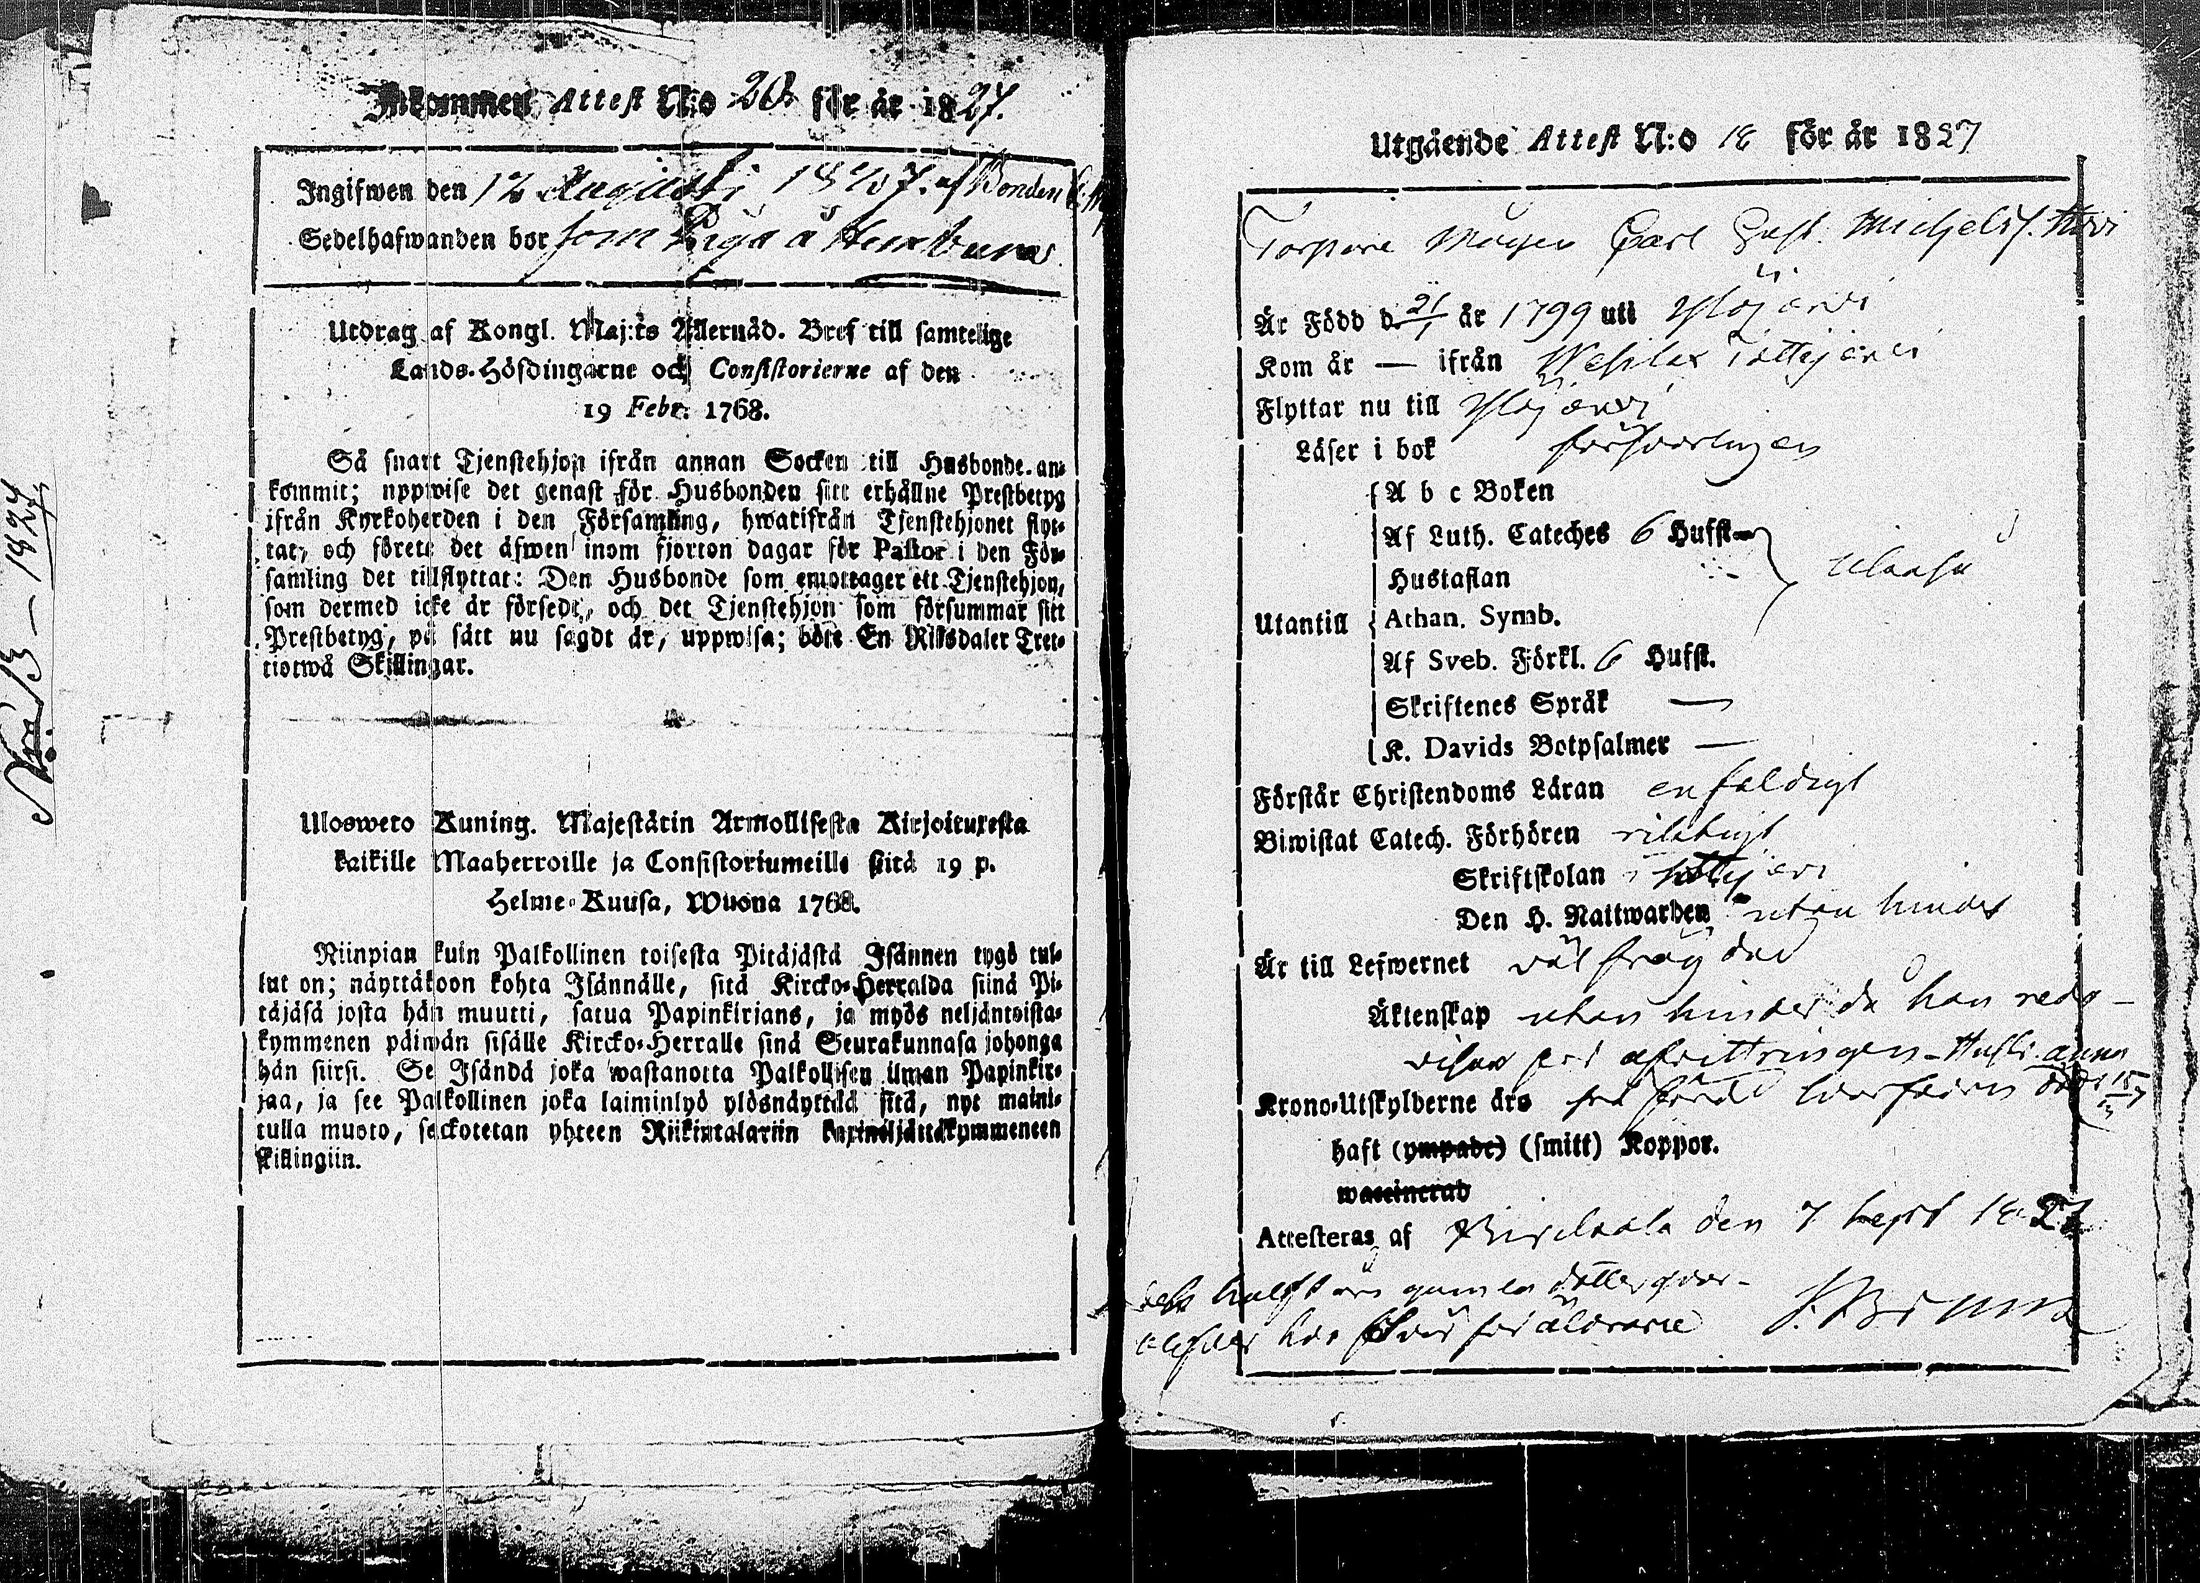 No 13 – 1827
Inkommen Attest N:o 20 för år 1827.
Ingifwen den 12 Augusti 1827. af Bonden
Sedelhafwanden bor som Piga å
Utdrag af Kongl. Maj:ts Allernåd. Bref till samtelige
Lands-Höfdingarne och Consistorierne af den
19 Febr. 1768.
Så snart Tjenstehjon ifrån annan Socken till Husbonde an-
kommit; uppwise det genast för Husbonden sitt erhållne Prestbetyg
ifrån Kyrkoherden i den Församling, hwarifrån Tjenstehjonet flyt-
tat, och förete det äfwen inom fjorton dagar för Pastor i den För-
samling det tillflyttat: Den Husbonde som emottager ett Tjenstehjon,
som dermed icke är försedt, och det Tjenstehjon som försummar sitt
Prestbetyg, på sätt nu sagdt är, uppwisa; böte En Riksdaler Tret-
tiotwå Skillingar.
Uloswero Kuning. Majestätin Armollisesta Kirjoituxesta
kaikille Maaherroille ja Consistoriumeille siitä 19 p.
Helme-Kuusa, Wuona 1768.
Niinpian kuin Palkollinen toisesta Pitäjästä Isännen tygö tul-
lut on; näyttäkoon kohta Isännälle, sitä Kircko-Herralda siinä Pi-
täjäsä josta hän muutti, saatua Papinkirjans, ja myös neljäntoista-
kymmenen päiwän sisälle Kircko-Herralle siinä Seurakunnasa johonga
hän siirsi. Se Isändä joka wastanotta Palkollisen ilman Papinkir-
jaa, ja see Palkollinen joka laiminlyö ylösnäyttää sitä, nyt maini-
tulla muoto, sackotetan yhteen Riikintalariin kaxineljättäkymmeneen
skillingiin.
Utgående Attest N:o 18 för år 1827
Torpare Mågen Carl Gust. Michelss.
Är Född d. 21/1 år 1799 uti Ylöjärvi
Kom år — ifrån Wesilax Tottijärvi
Flyttar nu till Ylöjärvi
Läser i bok försvarligen
A b c Boken
Af Luth. Cateches 6 Hufst.
Hustaflan
Utantill Athan. Symb.
Af Sveb. Förkl. 6 Hufst.
Skriftenes Språk —
K. Davids Botpsalmer —
Förstår Christendoms Läran enfaldigt
Biwistat Catech. Förhören riktigt
Skriftskolan i Tottijärvi
Den H. Nattwarden utan hinder
Är till Lefwernet väl frägdad
Äktenskap utan hinder då han redo-
visar för afvittringen Hustr. Anna
Krono-Utskylderne äro
haft (ympade) (smitt) Koppor.
waccinerad
Attesteras af Birckala den 7 Sept 1827
halft års gamla dotter qvar-
föräldrarne